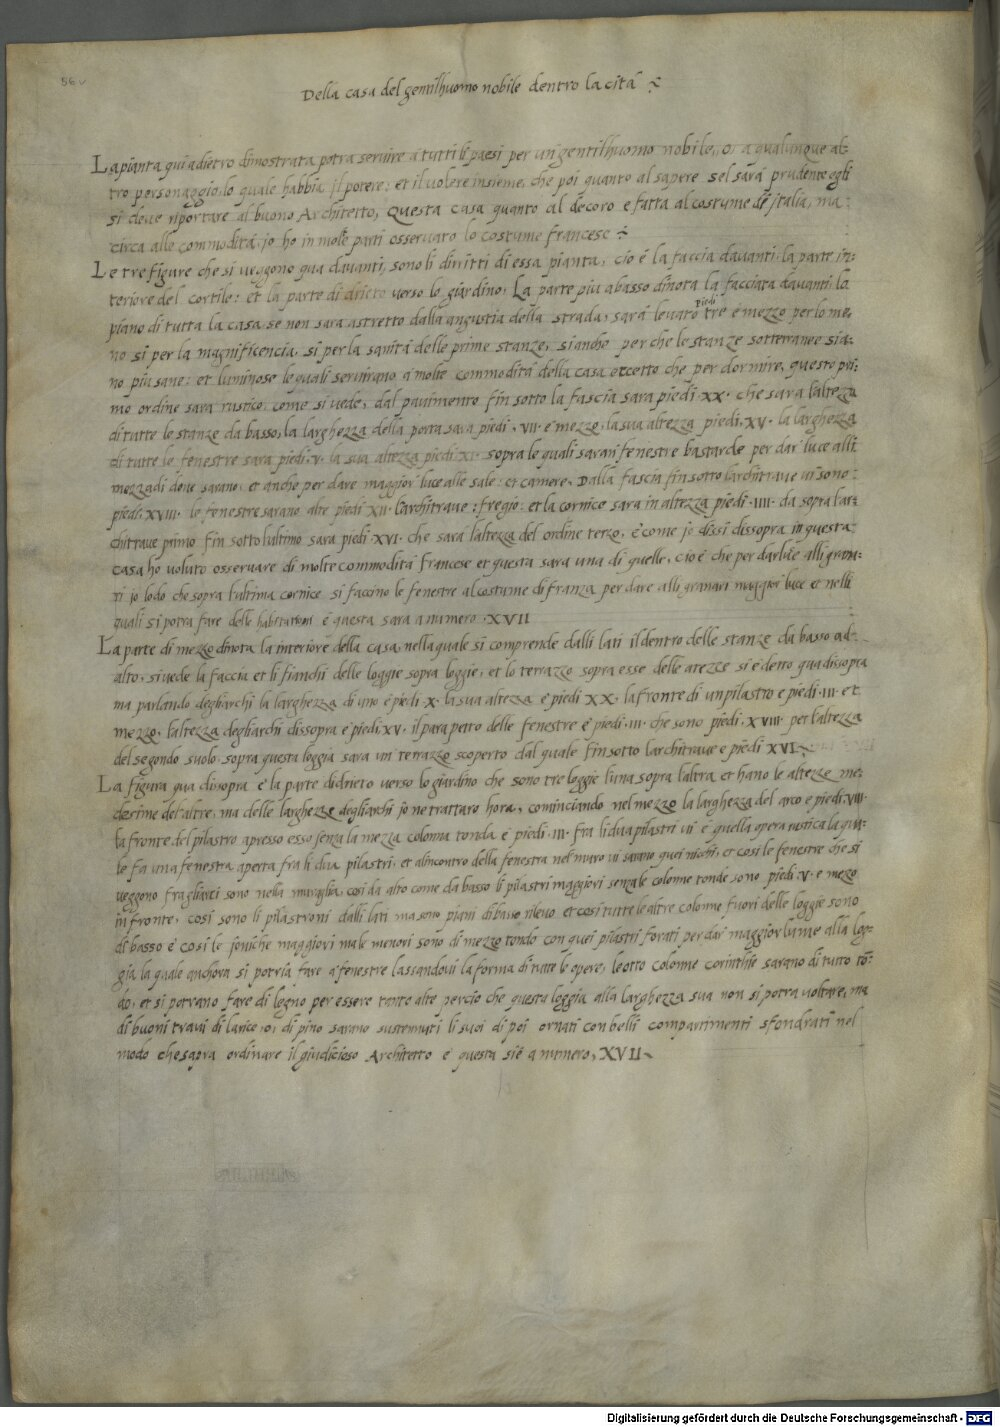 56 v
Della casa del gentilhuomo nobile dentro la cità
La pianta qui adietro dimostrata potra seruire a tutti li paesi per un gentilhuomo nobile, o, a qualunque al-
tro personaggio, lo quale habbia il potere: et il volere insieme, che poi quanto al sapere sel sarà prudente egli
si deue riportare al buono Architetto, Questa casa quanto al decoro e fatta al costume de italia, ma
circa alle commodità, io ho in molte parti osseruato lo costume francese
Le tre figure che si veggono qua dauanti, sono li diritti di essa pianta, cio è la faccia dauanti: la parte in-
teriore del cortile: et la parte di drieto verso lo giardino, La parte piu abasso dinota la facciata dauanti: lo
piano di tutta la casa se non sara astretto dalla angustia della strada, sarà leuato piedi tre e mezzo per lo me,
no si per la magnificencia, si per la sanità delle prime stanze, si anche perche le stanze sotterranee sia-
no piu sane: et luminose le quali seruirano a molte commodità della casa eccetto che per dormire, questo pri-
mo ordine sara rustico, come si vede, dal pauimento fin sotto la fascia sara piedi XX. che sara l'altezza
di tutte le stanze da basso, la larghezza della porta sara piedi, VII. e mezzo, la sua altezza piedi, XV. la larghezza
di tutte le fenestre sara piedi, V. la sua altezza piedi XI. sopra le quali saran fenestre bastarde per dar luce alli
mezzadi doue sarano, et anche per dare maggior luce alle sale: et camere, Dalla fascia fin sotto l'architraue vi sono
piedi, XXIII. le fenestre sarano alte piedi XII. l'architraue: fregio: et la cornice sara in altezza piedi. IIII. da sopra l'ar-
chitraue primo fin sotto l'ultimo sara piedi. XVI. che sara l'altezza del ordine terzo, e come io dissi dissopra in questa
casa ho voluto osseruare di molte commodità francese et questa sara una di quelle, cio è che per dar luce alli grana-
ri io lodo che sopra l'ultima cornice si faccino le fenestre al costume di franza, per dare alli granari maggior luce et nelli
quali si potra fare delle habitationi e questa sara a numero. XVII
La parte di mezzo dinota la interiore della casa, nella quale si comprende dalli lati il dentro delle stanze da basso ad-
alto, si vede la faccia et li fianchi delle loggie sopra loggie, et lo terrazzo sopra esse delle altezze si è detto qua dissopra
ma parlando degli archi la larghezza di uno è piedi. X. la sua altezza e piedi XX. la fronte di un pilastro e piedi. III. et
mezzo, l'altezza degli archi dissopra e piedi, XV. il parapetto delle fenestre e piedi. III. che sono piedi. XVIII. per l'altezza
del segondo suolo, sopra questa loggia sara un terrazzo scoperto dal quale fin sotto l'architraue e piedi XVI.
La figura qua dissopra e la parte di drieto verso lo giardino che sono tre loggie l'una sopra l'altra et hano le altezze me-
desime del'altre, ma delle larghezze degli archi io ne trattaro hora, cominciando nel mezzo la larghezza del arco e piedi, VIII.
la fronte del pilastro apresso esso senza la mezza colonna tonda e piedi. III. fra li dua pilastri vi è quella opera rustica la qua-
le fa una fenestra aperta fra li dua pilastri, et al incontro della fenestra nel muro vi sarano quei nicchi, et cosi le fenestre che si
veggono fra gli archi sono nella muraglia, cosi da alto come da basso li pilastri maggiori senza le colonne tonde sono piedi. V. e mezo
in fronte, cosi sono li pilastroni dalli lati ma sono piani di basso rileuo et cosi tutte le altre colonne fuori delle loggie sono
di basso e cosi le ioniche maggiori ma le menori sono di mezzo tondo con quei pilastri forati per dar maggior lume alla log-
gia la quale anchora si potria fare a fenestre lassandoui la forma di tutte le opere, le otto colonne corinthie sarano di tutto tō-
do, et si potrano fare di legno per essere tanto alte percio che questa loggia alla larghezza sua non si potra voltare, ma
di buoni traui di larice, o, di pino sarano sustentati li suoi di poi ornati con belli compartimenti sfondrati nel
modo che sapra ordinare il giudicioso Architetto e questa siè a numero, XVII
Digitalisierung gefördert durch die Deutsche Forschungsgemeinschaft - DFG